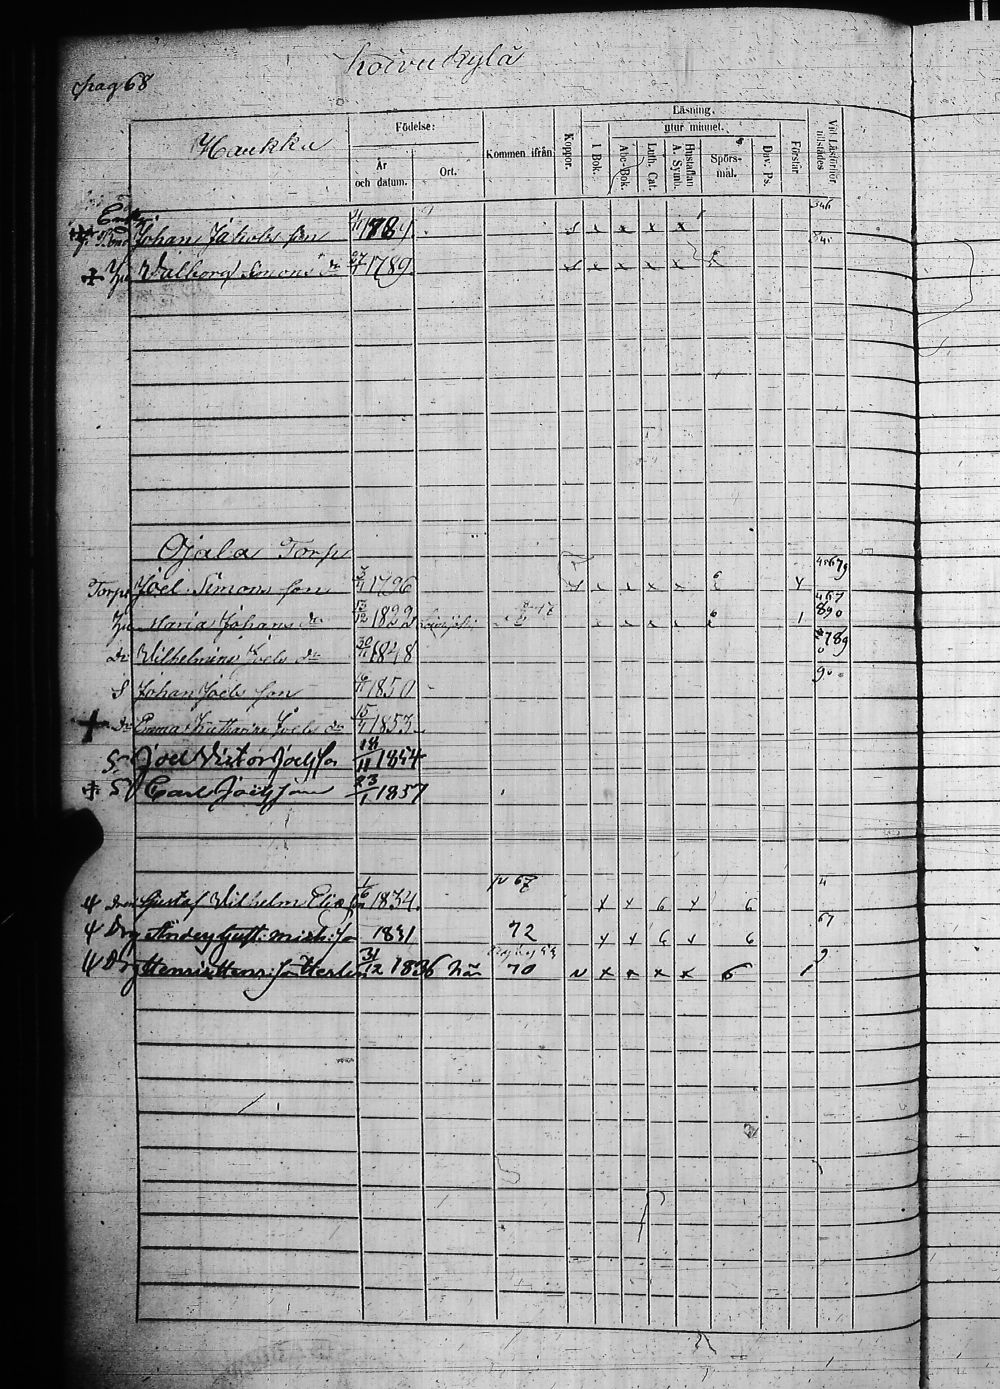 pag 68
Koivukylä
Haukka
Födelse:
År och datum.
Ort.
Kommen ifrån
Koppor.
Läsning.
I Bok.
utur minnet.
Abc-Bok.
Luth. Cat.
Hustaflan A. Symb.
Spörs-mål.
Dav. Ps.
Förstår
Vid Läsförhör tillstädes
Johan Jakobs son 1789 x x x x
+ Hu Walborg Simons dr 27/4 1789 x x x x
Ojala Torp
Torp Joel Simons son 1796 x x x x 6
Hu Maria Johans dr 13/12 1822 x x x x 6 1 457 890
Dr Wilhelmina Joels dr 30/11 1848 789
S Johan Joels son 1850
+ Dr Emma Katharina Joels dr 15/7 1853
S Joel Victor Joelsson 18/11 1854
+ S Carl Joelsson 23/1 1857
Gustaf Wilhelm Elias son 1/6 1834 p 67 x x 6 x 6 4
Drg Anders Gust: Mich: so 1831 72 x x 6 x 6 67
Drg Henric Henri: so 31/12 1836 70 x x x x 6 1 9